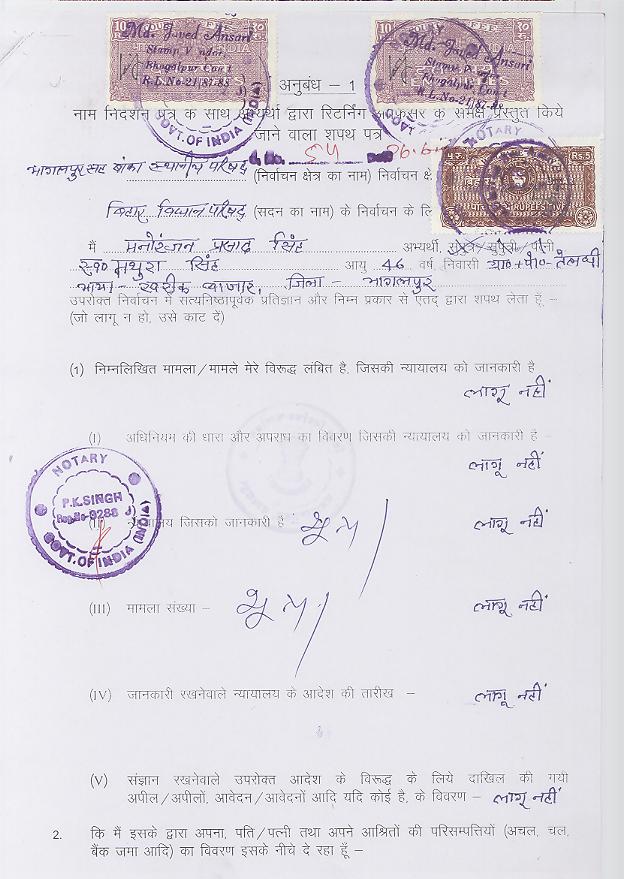 Md. Javed Ansari
Stamp Vendor
Bhagalpur Court
R.L.No-21/87-88
Md. Javed Ansari
Bhagalpur Court
R.L.No-21/87-88
GOVT.OF INDIA (INDIA)
NOTARY
अनुबंध – 1
नाम निदर्शन पत्र के साथ अभ्यर्थी द्वारा रिटर्निंग आफिसर के समक्ष प्रस्तुत किये
जाने वाला शपथ पत्र
भागलपुर सह बांका स्थानीय परिषद् (निर्वाचन क्षेत्र का नाम) निर्वाचन
बिहार विधान परिषद् (सदन का नाम) के निर्वाचन के
मैं मनोरंजन प्रसाद सिंह अभ्यर्थी, सुपुत्र/सुपुत्री/पत्नी
स्व० मथुरा सिंह आयु 46 वर्ष, निवासी ग्रा०+पो०-
खरीक बाजार, जिला – भागलपुर
उपरोक्त निर्वाचन में सत्यनिष्ठापूर्वक प्रतिज्ञान और निम्न प्रकार से एतद् द्वारा शपथ लेता हूँ –
(जो लागू न हो, उसे काट दें)
(1) निम्नलिखित मामला/मामले मेरे विरूद्ध लंबित है, जिसकी न्यायालय को जानकारी है
लागू नहीं
(I) अधिनियम की धारा और अपराध का विवरण जिसकी न्यायालय को जानकारी है –
लागू नहीं
NOTARY
P.K.SINGH
Reg.No-9288
GOVT.OF INDIA (INDIA)
जिसको जानकारी है – लागू नहीं
(III) मामला संख्या – लागू नहीं
(IV) जानकारी रखनेवाले न्यायालय के आदेश की तारीख – लागू नहीं
(V) संज्ञान रखनेवाले उपरोक्त आदेश के विरूद्ध के लिये दाखिल की गयी
अपील/अपीलों, आवेदन/आवेदनों आदि यदि कोई है, के विवरण – लागू नहीं
2. कि मैं इसके द्वारा अपना, पति/पत्नी तथा अपने आश्रितों की परिसम्पत्तियों (अचल, चल,
बैंक जमा आदि) का विवरण इसके नीचे दे रहा हूँ –